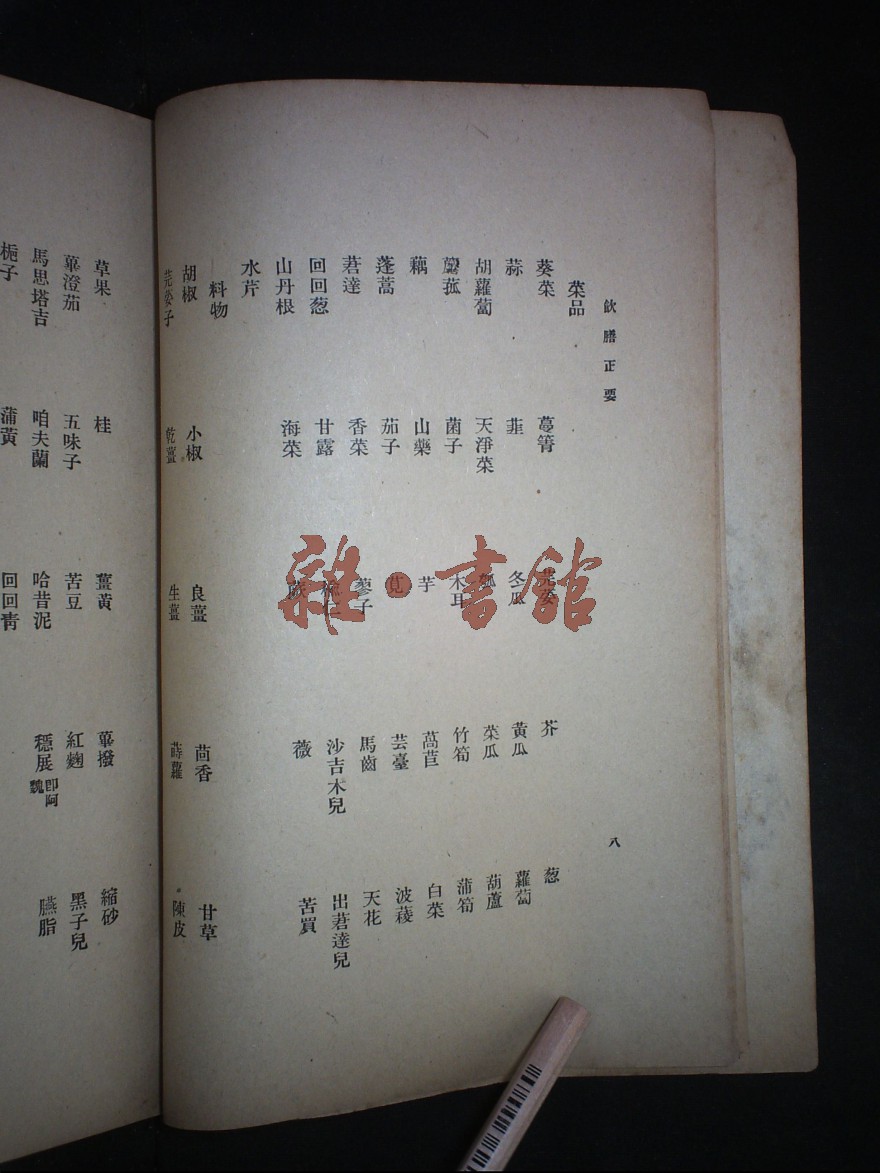 飲膳正要
八
菜品
葵菜 蔓菁 芫荽 芥 葱
蒜 韭 冬瓜 黃瓜 蘿蔔
胡蘿蔔 天淨菜 瓠 菜瓜 葫蘆
蘑菰 菌子 木耳 竹筍 蒲筍
藕 山藥 芋 萵苣 白菜
蓬蒿 茄子 莧 芸臺 波薐
莙達 香菜 蓼子 馬齒 天花
回回葱 甘露 沙吉木兒 出莙達兒
山丹根 海菜 蕨 薇 苦買
水芹
料物
胡椒 小椒 良薑 茴香 甘草
芫荽子 乾薑 生薑 蒔蘿 陳皮
草果 桂 薑黃 蓽撥 縮砂
蓽澄茄 五味子 苦豆 紅麴 黑子兒
馬思塔吉 咱夫蘭 哈昔泥 穩展 即阿魏 臙脂
梔子 蒲黃 回回青
雜·書館